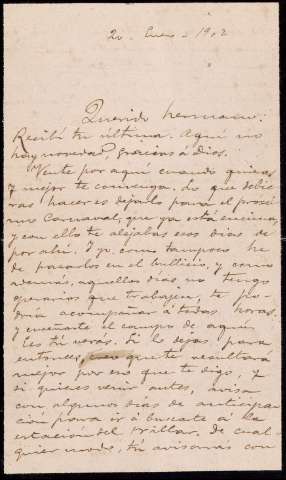 20 Enero - 1902
Querido hermano:
Recibí tu última. Aquí no
hay novedad, gracias á dios.
Vente por aquí cuando quieras
y mejor te convenga. Lo que debie
ras hacer es dejarlo para el proxi
mo Carnaval, que ya está encima,
y con ello te alejabas esos dias de
por ahí. Y yo, como tampoco he
de pasarlos en el bullicio, y como
además, aquellos dias no tengo
operarios que trabajen, te po-
dria acompañar á todas horas
y enseñarte el campo de aquí.
Tú verás. Si lo dejas para
entonces, creo que te resultará
mejor por eso que te digo, y
si quieres venir antes, avisa
con algunos dias de anticipa
ción para ir á buscarte á la
estación del Villar. De cual-
quier modo, tú avisarás con